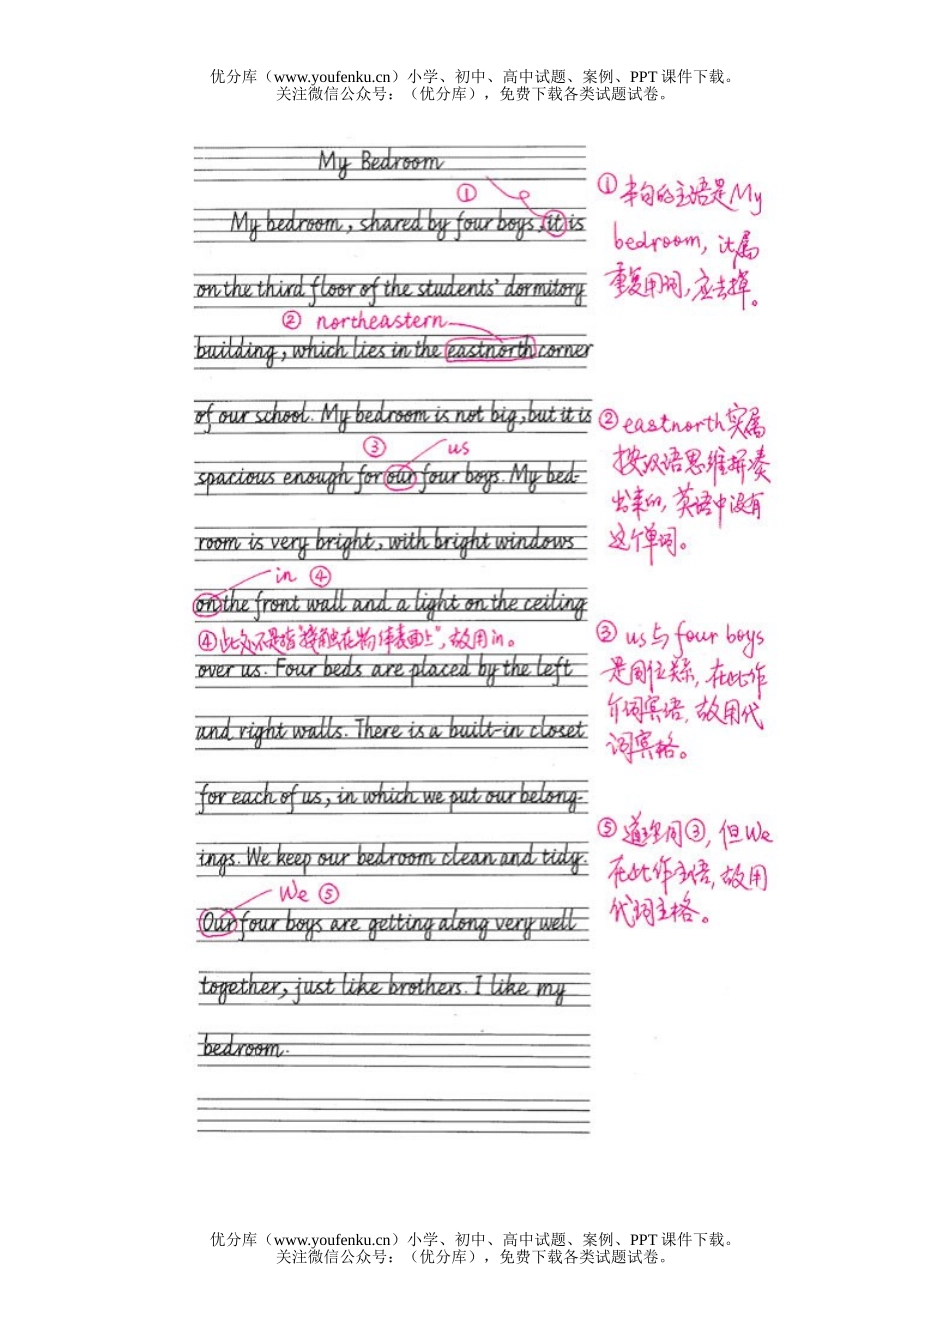 优分库（www.youfenku.cn）小学、初中、高中试题、案例、PPT 课件下载。
关注微信公众号：（优分库），免费下载各类试题试卷。
My Bedroom
①
My bedroom, shared by four boys, it is
on the third floor of the students' dormitory
② northeastern
building, which lies in the eastnorth corner
of our school. My bedroom is not big, but it is
③ us
spacious enough for our four boys. My bed-
room is very bright, with bright windows
in ④
on the front wall and a light on the ceiling
④此处不是指“接触在物体表面上”，故用in。
over us. Four beds are placed by the left
and right walls. There is a built-in closet
for each of us, in which we put our belong-
ings. We keep our bedroom clean and tidy.
We ⑤
Our four boys are getting along very well
together, just like brothers. I like my
bedroom.
①本句的主语是My
bedroom，it属
重复用词，应去掉。
②eastnorth实属
按汉语思维拼凑
出来的，英语中没有
这个单词。
③us与four boys
是同位关系，在此作
介词宾语，故用代
词宾格。
⑤道理同③，但We
在此作主语，故用
代词主格。
优分库（www.youfenku.cn）小学、初中、高中试题、案例、PPT 课件下载。
关注微信公众号：（优分库），免费下载各类试题试卷。